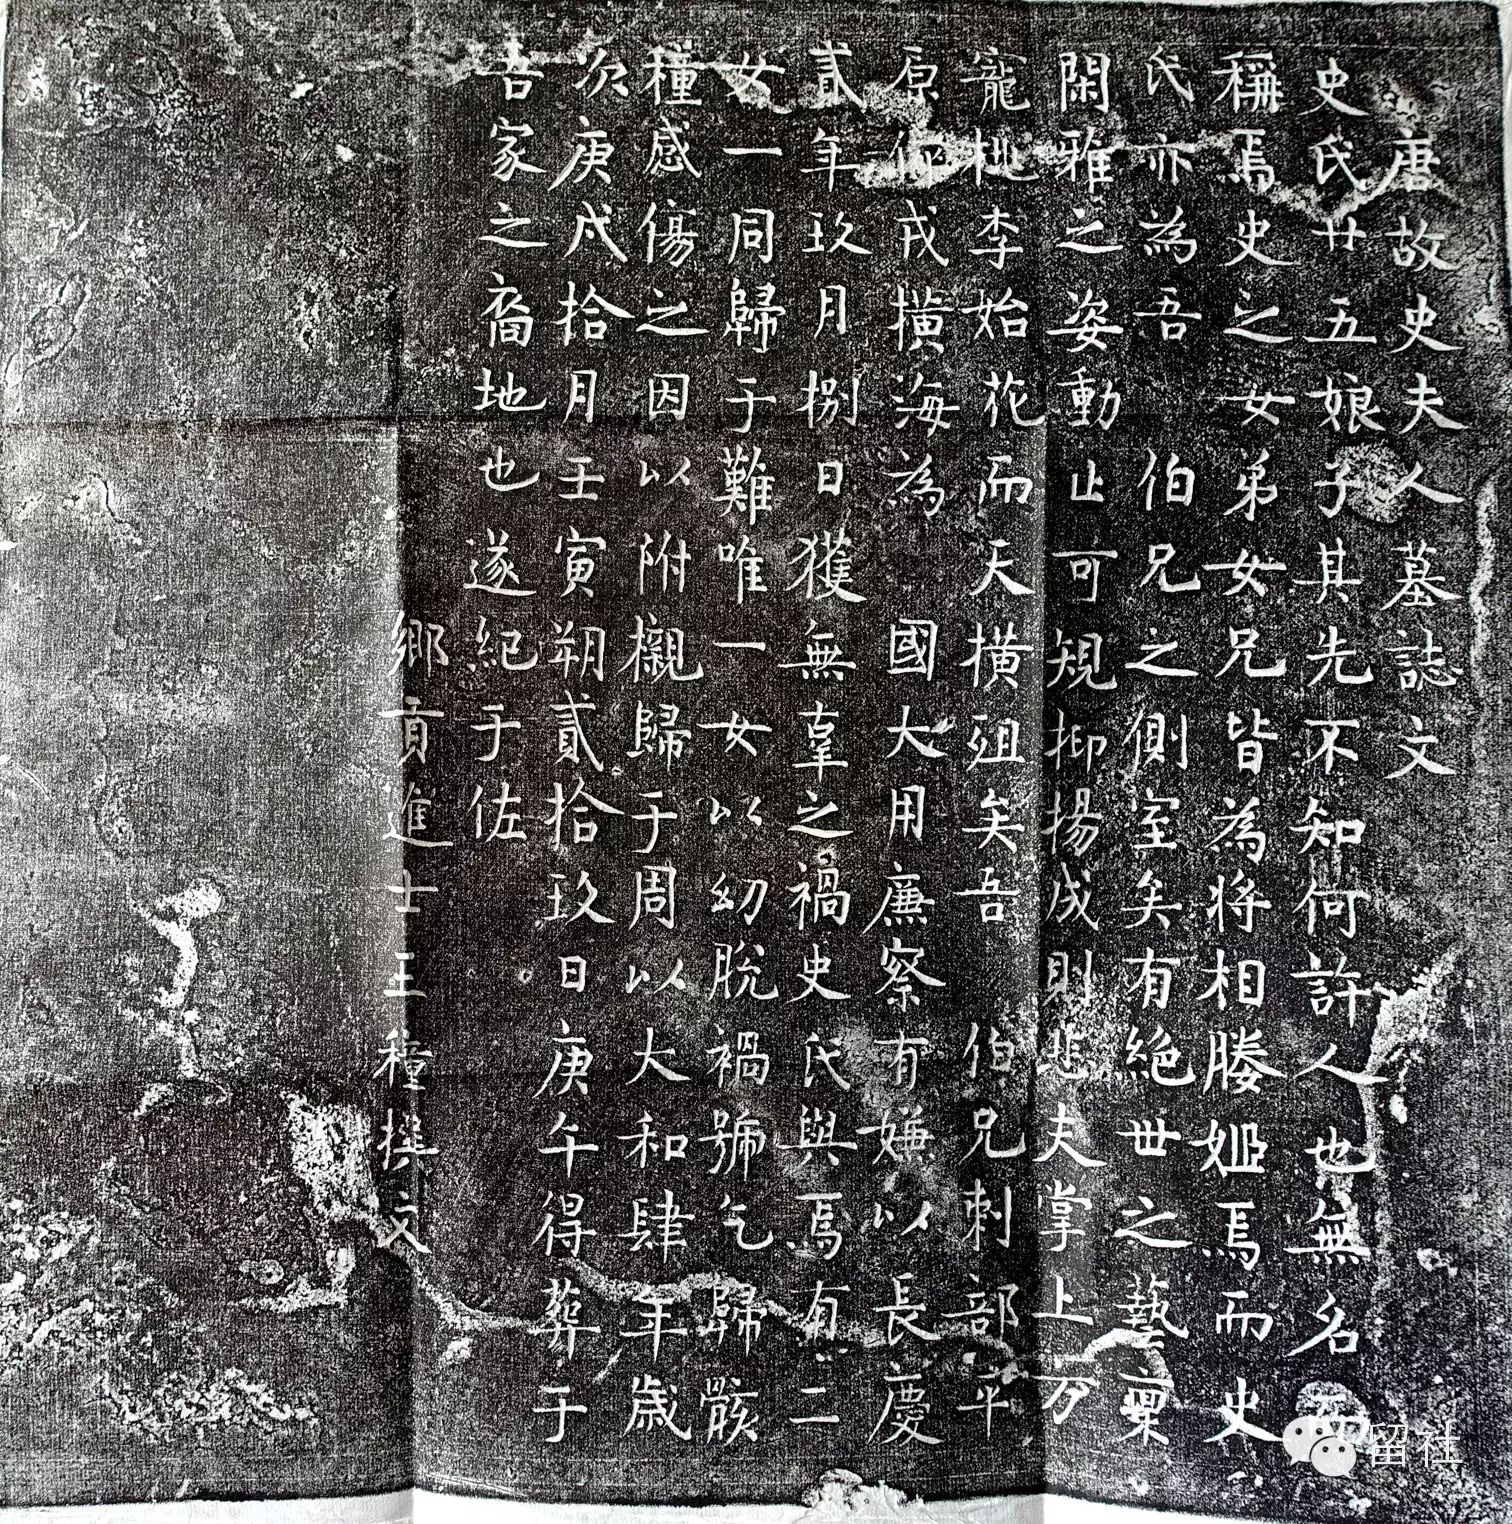 唐故史夫人墓誌文
史氏廿五娘子其先不知何許人也無名而
稱焉史之女弟女兄皆為將相媵姬焉而史
氏亦為吾伯兄之側室矣有絕世之藝稟
閑雅之姿動止可規抑揚成則悲夫掌上万
寵桃李始花而夭橫殂矣吾伯兄刺部平
原作戎橫海為國大用廉察有嫌以長慶
貳年玖月捌日獲無辜之禍史氏與焉有二
女一同歸于難唯一女以幼脫禍號乞歸骸
種感傷之因以附櫬歸于周以大和肆年歲
次庚戌拾月壬寅朔貳拾玖日庚午得葬于
吉家之裔地也遂紀于佐
鄉貢進士王種撰文
留社